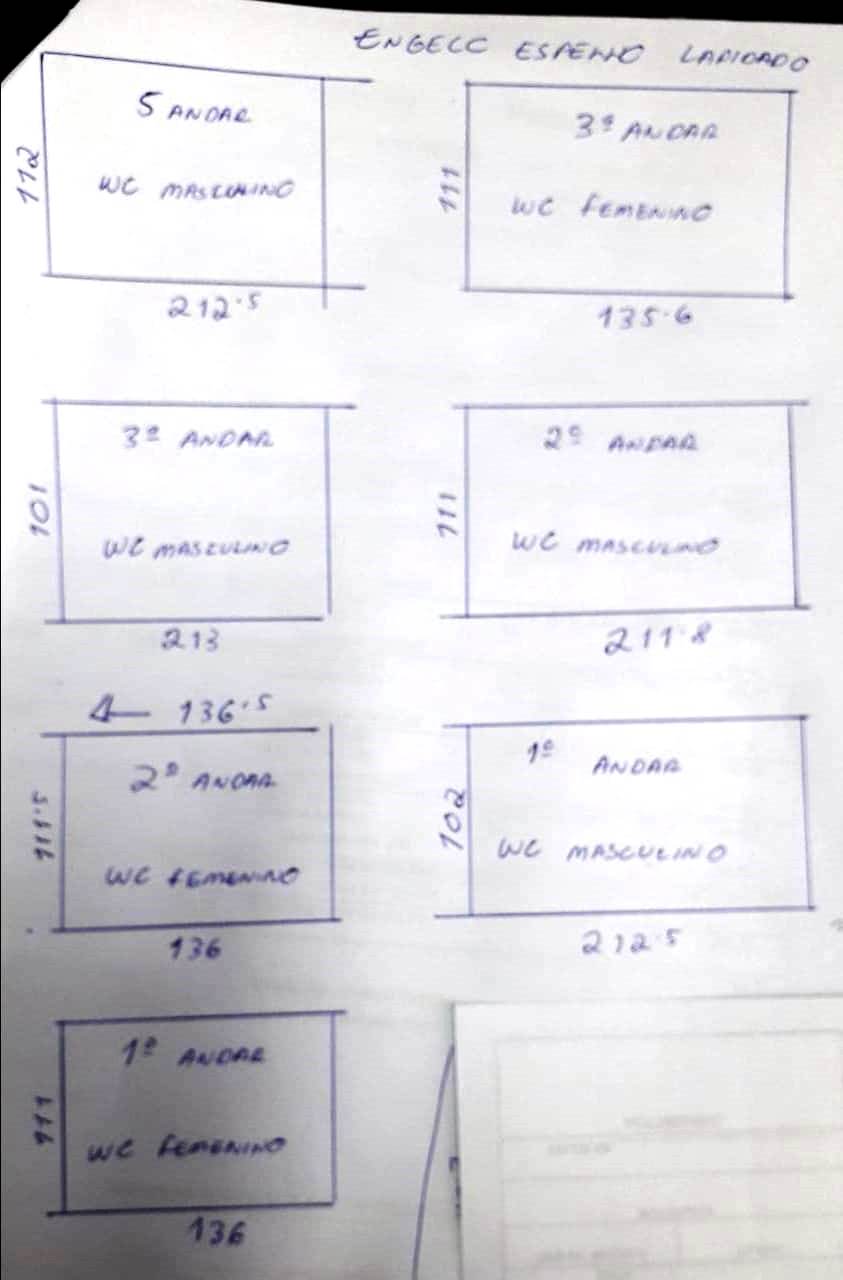 ENGECC ESPELHO LAPIDADO
5 ANDAR
WC MASCULINO
112
212.5
3º ANDAR
WC FEMENINO
111
135.6
3º ANDAR
WC MASCULINO
101
213
2º ANDAR
WC MASCULINO
111
211.8
136.5
2º ANDAR
WC FEMENINO
111.5
136
1º ANDAR
WC MASCULINO
102
212.5
1º ANDAR
WC FEMENINO
111
136